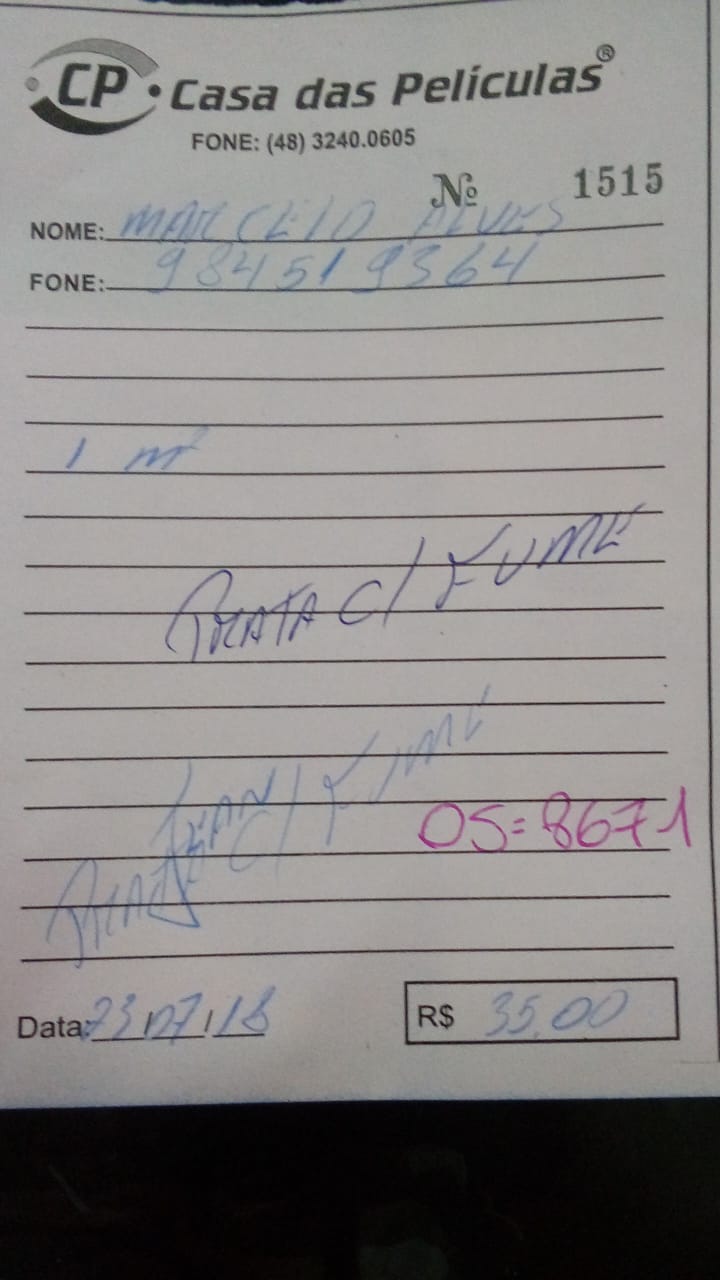 CP • Casa das Películas®
FONE: (48) 3240.0605
Nº 1515
NOME: MARCELO ALVES
FONE: 984519364
1 m²
PRATA C/ FUME
C/ FUME
OS=8671
Data: 23/07/18
R$ 35,00